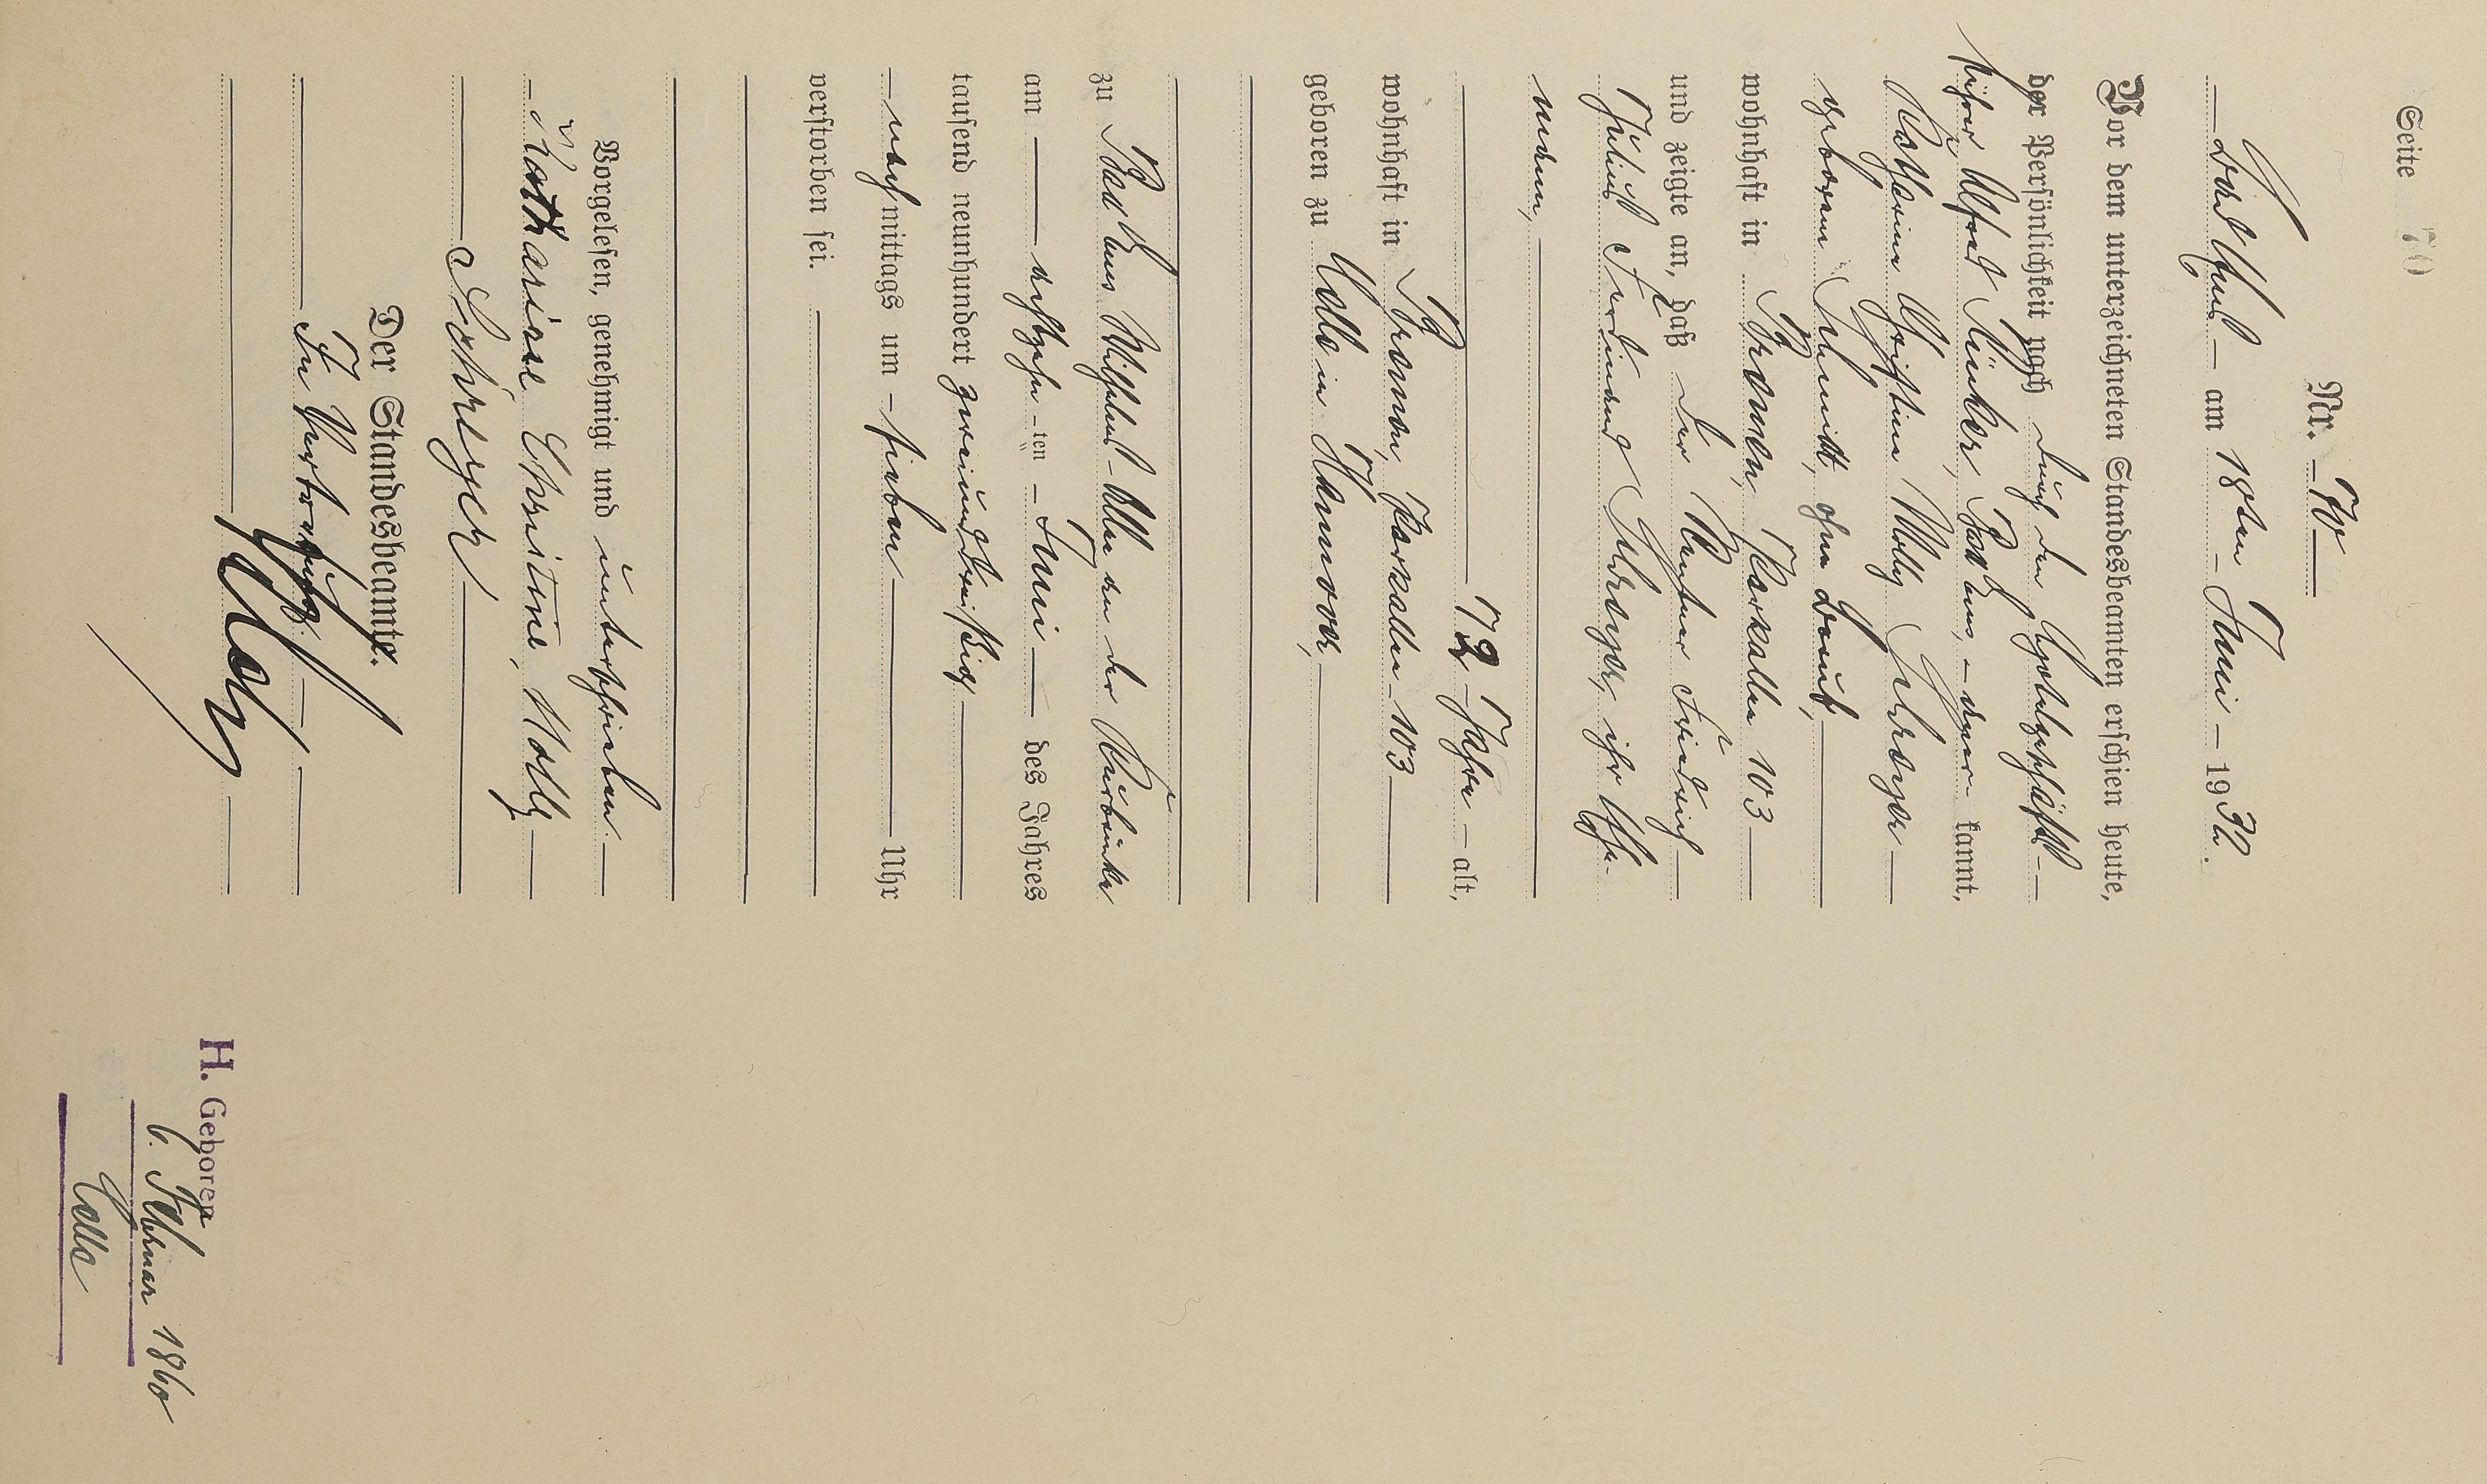 Seite 70
Nr. 70
Dorfhusl am 18ten Juni 1932.
Vor dem unterzeichneten Standesbeamten erschien heute,
der Persönlichkeit nach durch den Geschäfts-
führer Alfred Bünker, kannt,
Katharine Christine Molly Schrager
geborene Schmidt, ohne Beruf,
wohnhaft in Bremen, Parkallee 103
und zeigte an, daß der Rentner Friedrich
Julius Ferdinand Schrager, ihr Ehe-
mann,
72 Jahre alt,
wohnhaft in Bremen, Parkallee 103
geboren zu Celle in Hannover,
zu
am achtzehnten Juni des Jahres
tausend neunhundert zweiunddreißig
nachmittags um sieben Uhr
verstorben sei.
Vorgelesen, genehmigt und unterschrieben
Katharine Christine, Molly
Schrager
Der Standesbeamte.
In Vertretung:
H. Geboren
6. Februar 1860
Celle